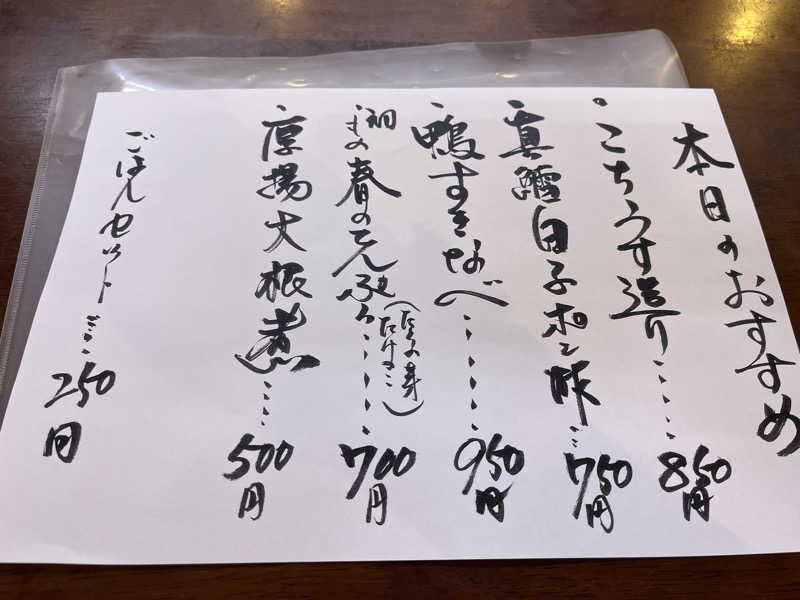 本日のおすすめ
・こちうす造り・・・・850円
・真鱈白子ポン酢・・・750円
・鴨すきなべ・・・・・950円
・初もの春の天ぷら・・・・・700円
(たらの芽 たけのこ)
・厚揚大根煮・・・500円
ごはんセット・・・250円